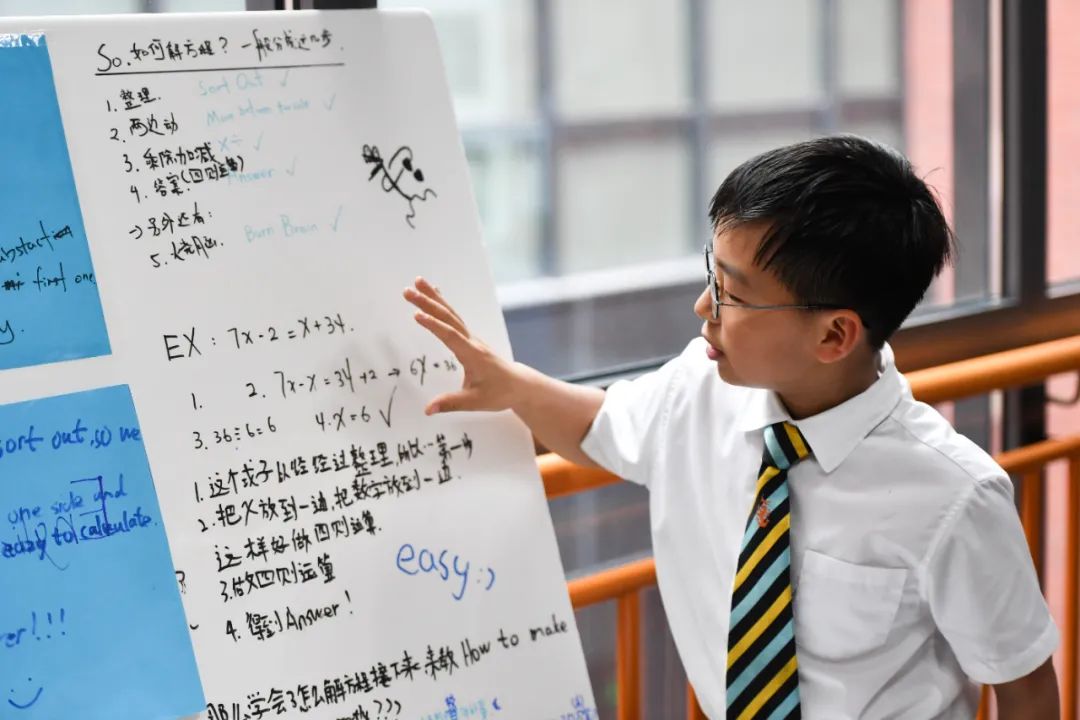 So. 如何解方程？一般分成这几步.
1. 整理. Sort Out ✓
2. 两边动 ✓
3. 乘除加减 X ÷ ✓
4. 答案.(四则运算) Answer ✓
→另外还有:
5. 火烧脑. Burn Brain ✓
EX : 7x-2=x+34.
1. 2. 7x-x=34+2 → 6x=36
3. 36÷6=6 4.x=6 ✓
1. 这个式子以经经过整理,所以…第一步
2. 把X放到一边,把数字放到一边.
这样好做四则运算.
3.做四则运算
4. 得到Answer!
easy:)
学会了怎么解方程接下来来教How to make
???
first one
y.
sort out,so we
one side and
to calculate.
er!!!